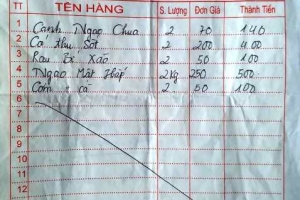 TT TÊN HÀNG S. Lượng Đơn Giá Thành Tiền
1 Canh Ngao Chua 2 70 140
2 Cá thu Sốt 2 200 400
3 Rau Bí Xào 2 50 100
4 Ngao Mật Hấp 2kg 250 500
5 Cơm cá 2 50 100
6
7
8
9
10
11
12